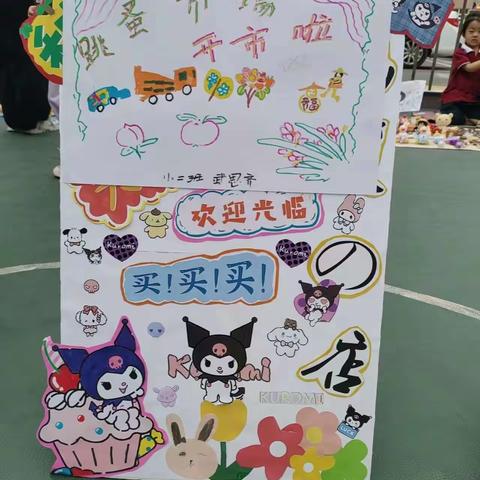 跳蚤市场
开市啦
福
小二班
欢迎光临
Kuromi
Kuromi
买!买!买!
の
店
Kuromi
KUROMI
LUCK